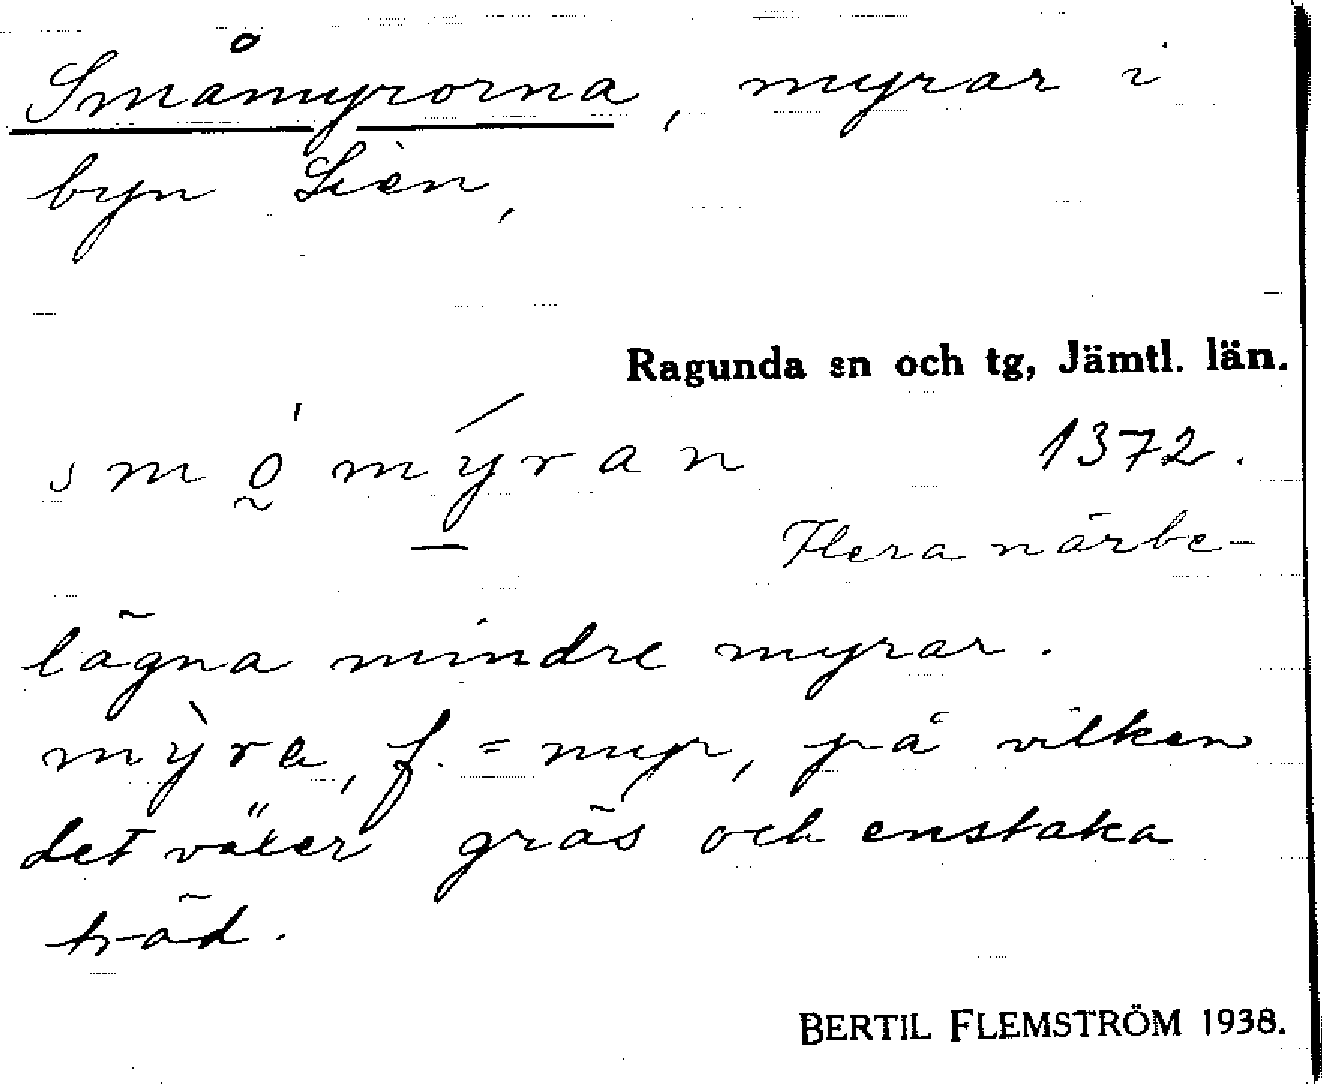 Småmyrorna, myrar i
byn Lien,
Ragunda sn och tg, Jämtl. län.
smo̰̍mýran 1372.
Flera närbe-
lägna mindre myrar.
mỳra, f. = myr, på vilken
det växer gräs och enstaka
träd.
BERTIL FLEMSTRÖM 1938.